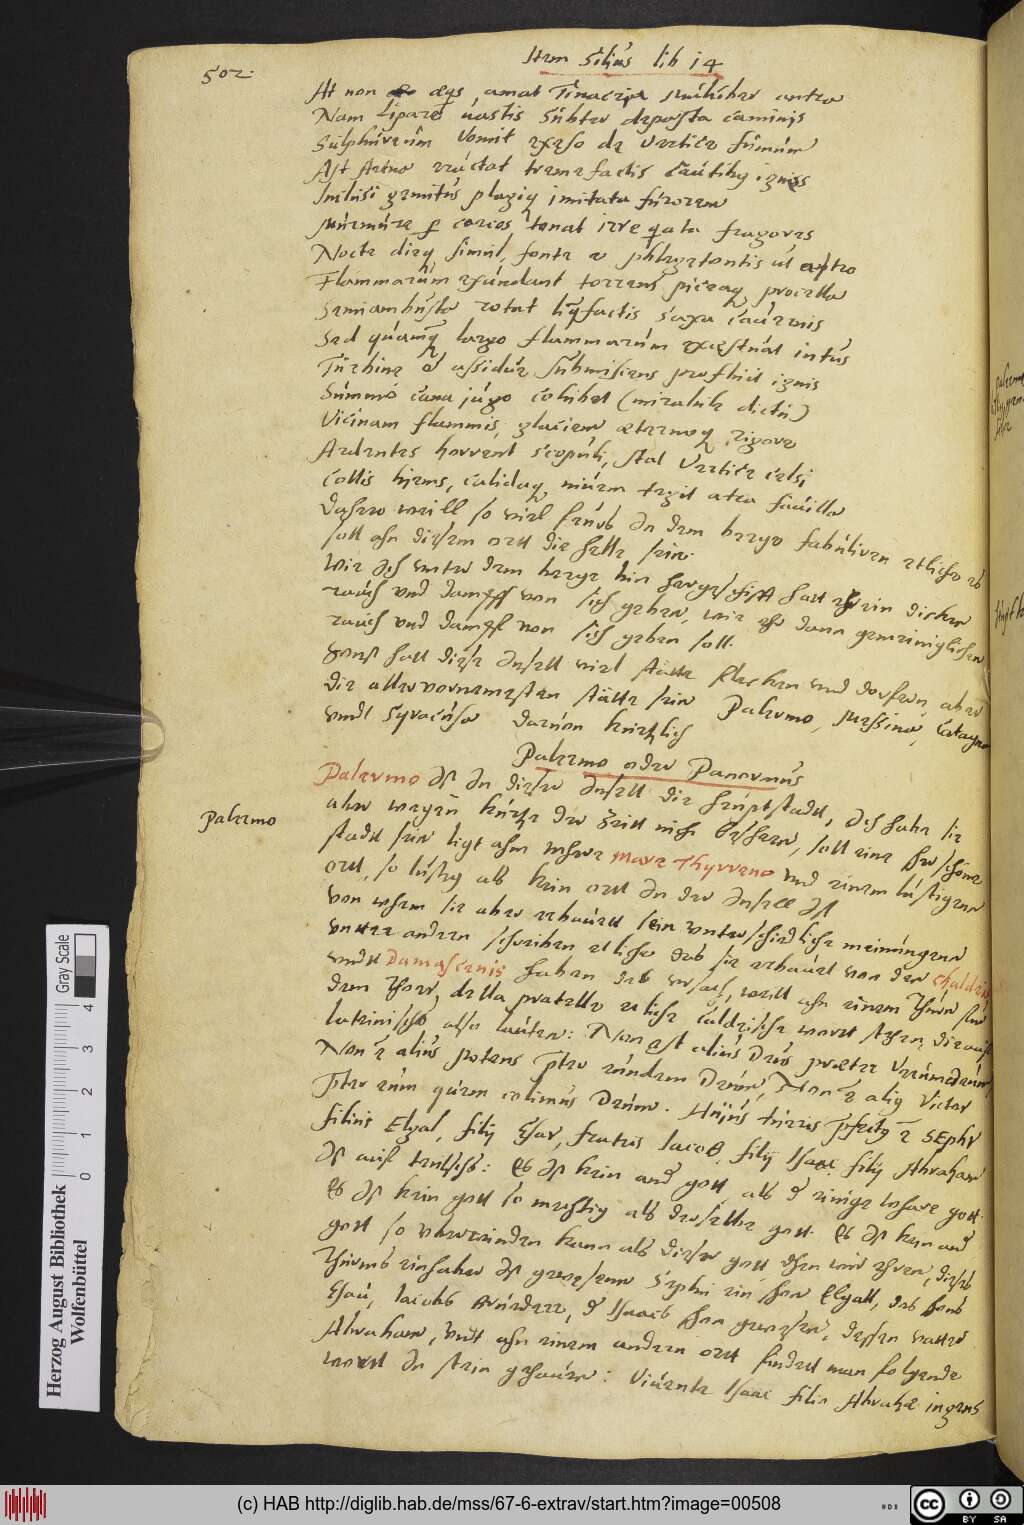 502.
Item Silius lib 14
At non aeqs amat Trinacria mulciber antra
Nam Lipare uastis subter depasta caminis
Sulphureum vomit exeso de vertice fumum
Ast Aetna eructat tremefactis cautibus ignes
Inclusi gemitus pelagiq imitata furorem
Murmure p caecos tonat irrequata fragores
Nocte dieq simul, fonte e phlegetontis ut atro
Flammarum exundant torrens piceaq procella
Semiambusta rotat liqfactis saxa cauernis
Sed quamq largo flammarum exaestuat intus
Turbine et assidue submisciens profluit ignis
Summo cana jugo cohibet (mirabile dictu)
Vicinam flammis, glaciem aeternoq rigore
Ardentes horrent scopuli, stat vertice celsi
Collis hiems, calidaq niuem tegit atra fauilla
Dahero weill so viel
soll ahn diesem ortt die helle sein.
rauch vnd dampff von sich geben, wie
rauch vnd dampff von sich geben soll.
Sonst hatt diese Insell viel stätte flecken vnd dorfern, aber
die allervornemesten stätte sein Palermo, Messina, Catagna
vndt Syracusa daruon kürtzlich
Palermo oder Panormus
Palermo
Palermo Ist In dieser Insell die hauptstadtt, Ich habe sie
aber wegen kürtze der Zeitt nicht besehen, soll eine sehr schöne
stadtt sein ligt ahm Mehere Mare Thyrreno vnd einem lustigenn
ortt, so lustig als kein ortt In der Insell Ist
von wehm sie aber erbauett sein vnterschiedliche meinungenn
vnter andern schreiben etliche das sie erbauet von den Chaldeis
vndt Damascenis haben das vrsach, weill ahn einem Thurn
dem Thore, della pratelle etliche Caldeische wortt stehen, die auf
lateinisch also lauten: Non est alius Deus praeter verum deum
Non e alius potens pter eundem Deum, Non e aliq Victor
pter eum quem colimus Deum. Huius turris pfectq e Sephr
filius Elyal, filij Esav, fratris Iacob, filij Isaac filij Abraham
Ist auf teutsch: Es Ist kein and gott, als d einige wahre gott.
Es Ist kein gott so mechtig als derselbe gott. Es Ist kein and
gott so vberwinden kann als dieser gott then wir ehren, dieses
Thurms einhaber Ist gewesenn Sephi ein sohn Elyall, des sohns
Esau, Iacobs Bruderr, d Isaacs sohn gewesen, dessen vatter
Abraham, vndt ahn einem andern ortt findett man folgende
wortt In stein gehauen: Viuente Isaac filio Abrahae ingens
Herzog August Bibliothek
Wolfenbüttel
0 1 2 3 4
Gray Scale
(c) HAB http://diglib.hab.de/mss/67-6-extrav/start.htm?image=00508
cc BY SA